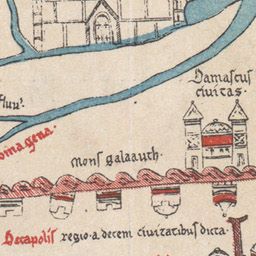 Damascus
civitas.
fluu'.
mons galaauth.
Decapolis regio·a decem civitatibus dicta.